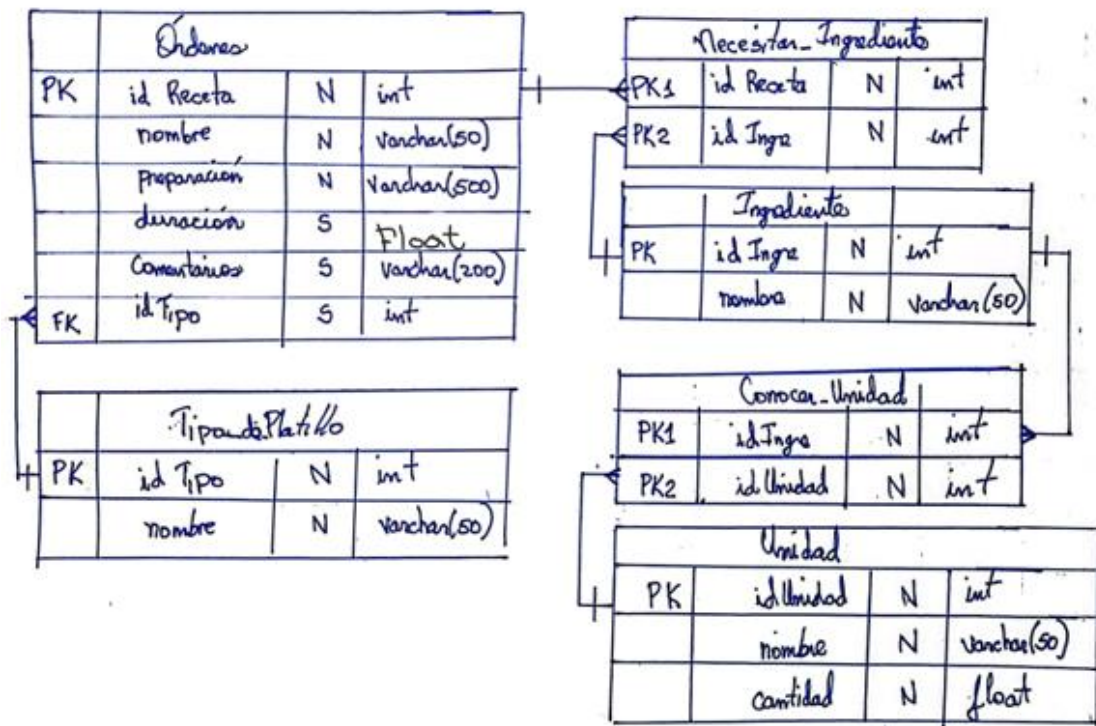 Órdenes
PK id Receta N int
nombre N varchar(50)
preparación N varchar(500)
duración S Float
Comentarios S varchar(200)
FK id Tipo S int
Tipo_de_Platillo
PK id Tipo N int
nombre N varchar(50)
Necesitar_Ingrediente
PK1 id Receta N int
PK2 id Ingre N int
Ingrediente
PK id Ingre N int
nombre N varchar(50)
Conocer_Unidad
PK1 idIngre N int
PK2 idUnidad N int
Unidad
PK idUnidad N int
nombre N varchar(50)
cantidad N float